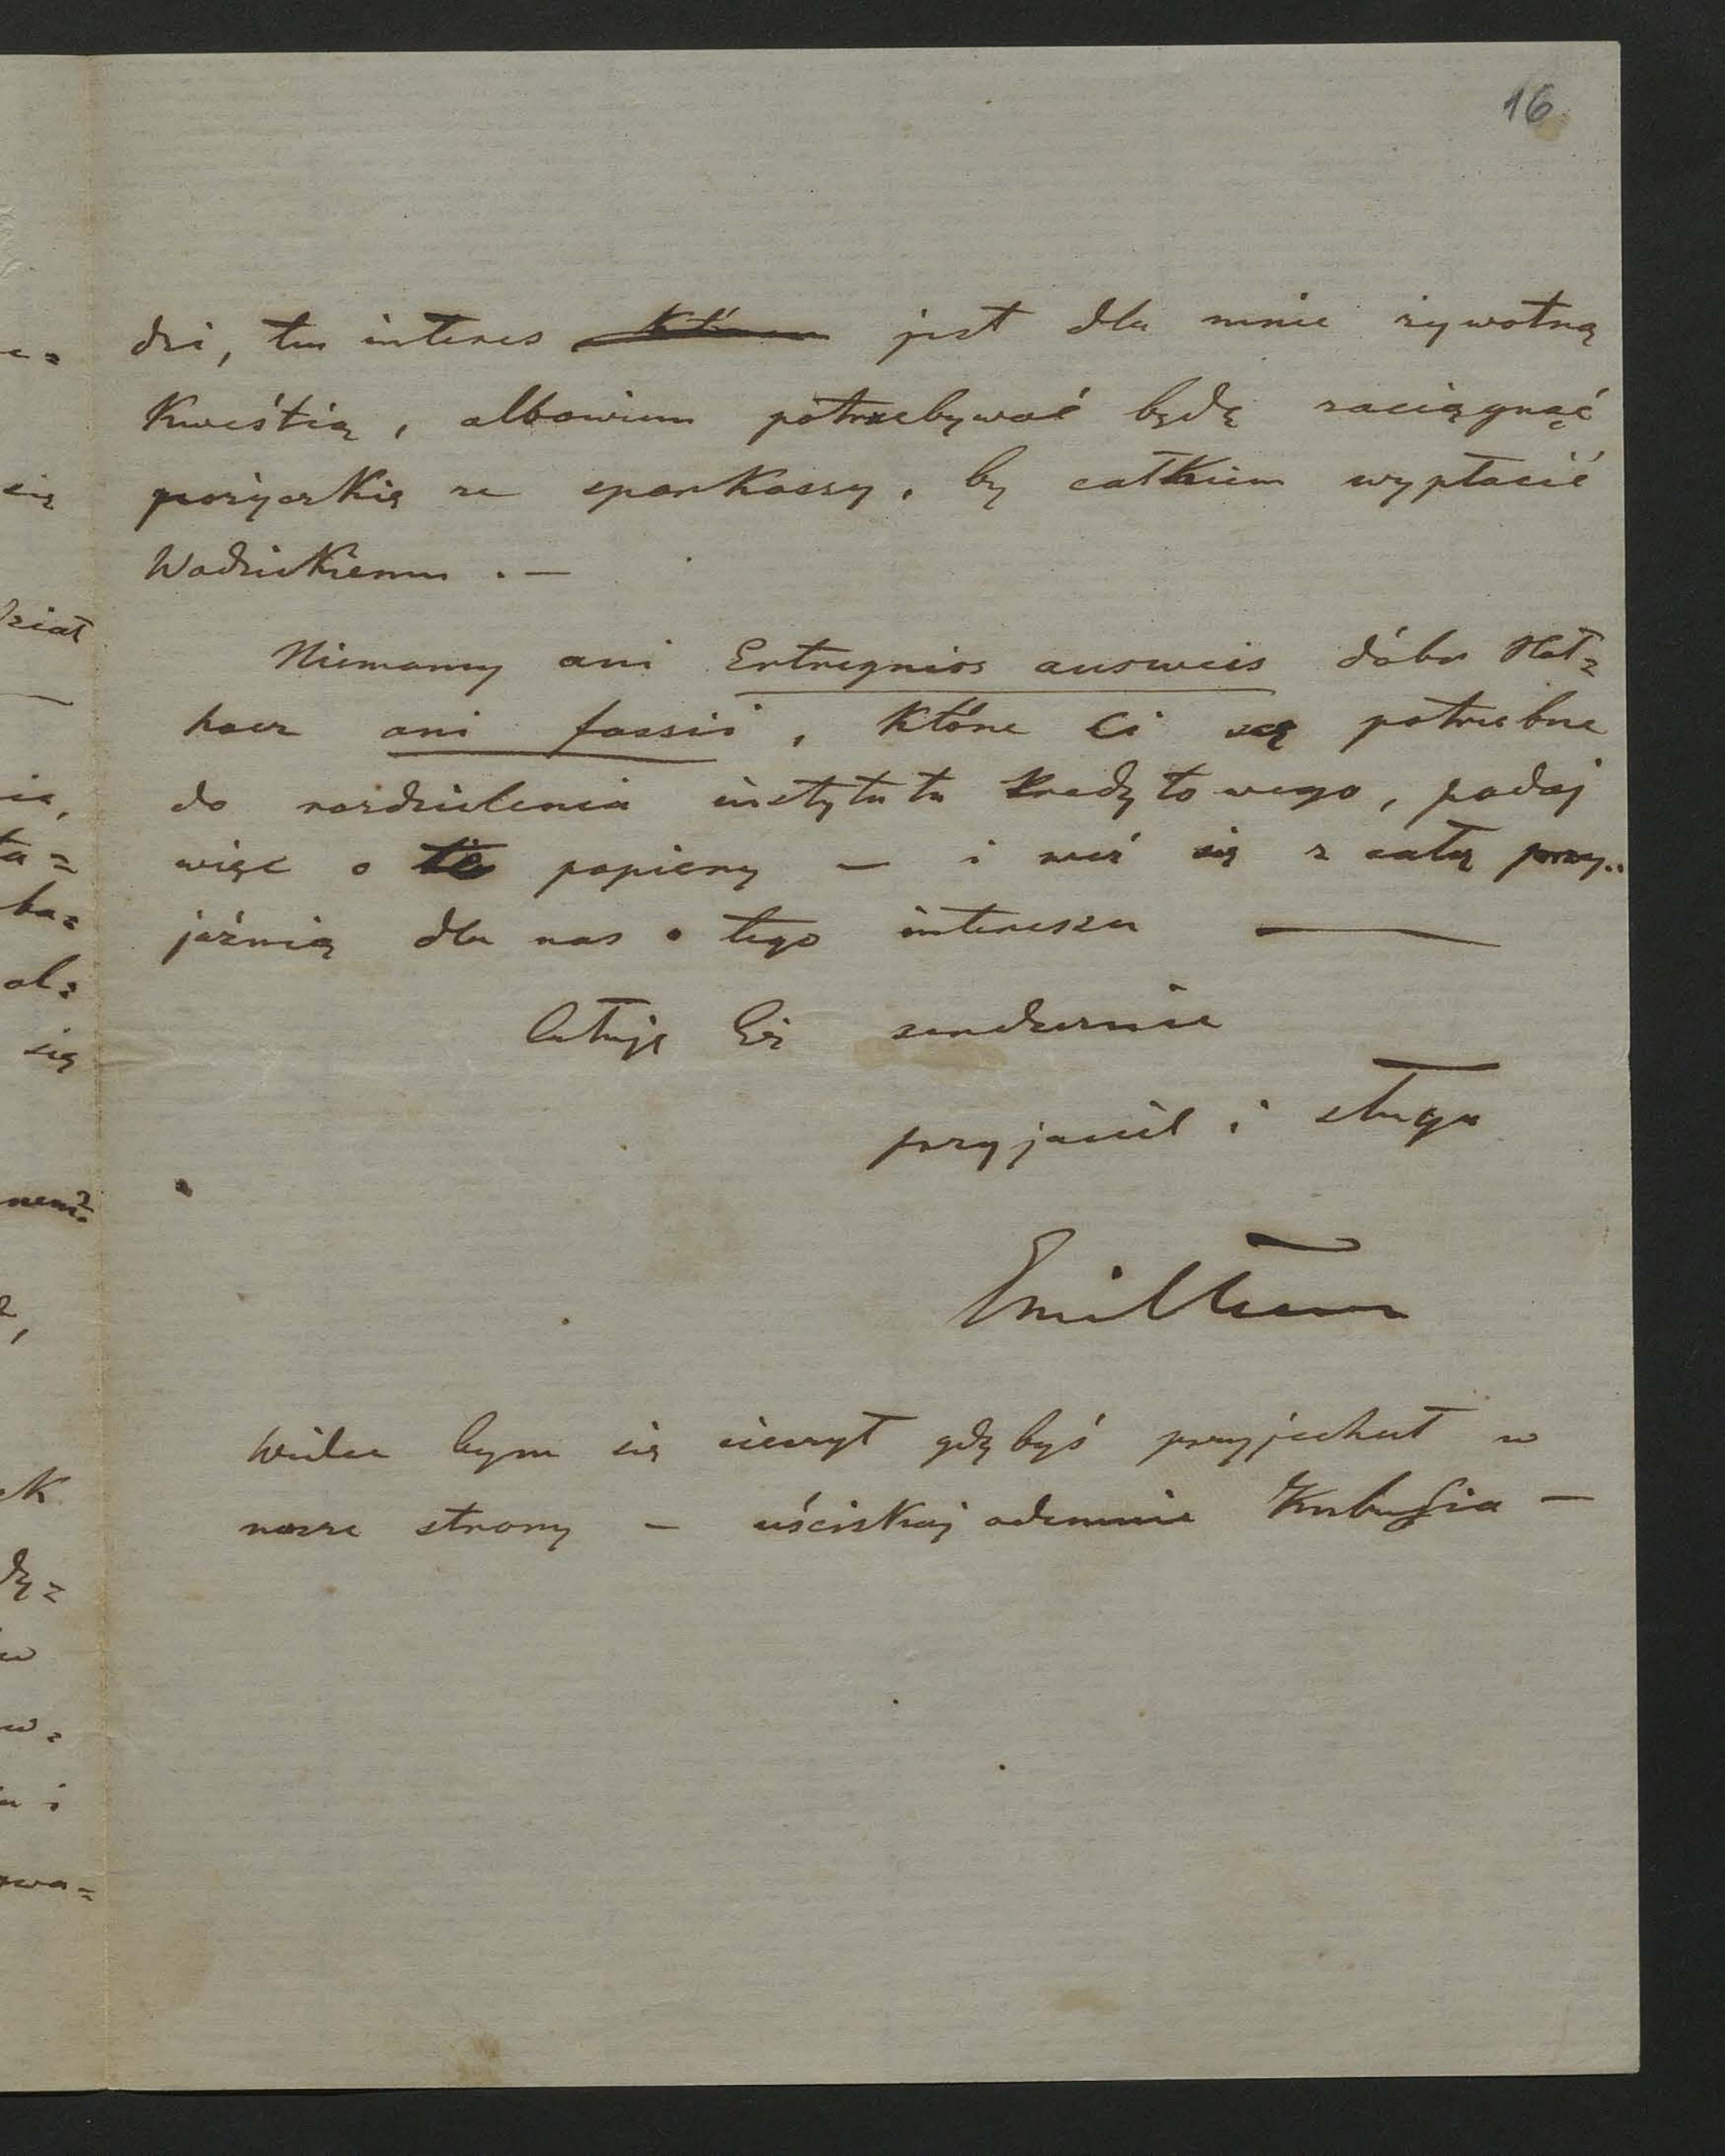 16
dzi, ten interes jest dla mnie zywotną
Kwestią, albowiem potrzebywać będę zaciągnąć
pożyczkię ze sparKassy, by całkiem wypłacić
WodzicKiemu . —
Niemamy ani Ertregniss ausweis dóbr
ani fassii, Które Ci są potrzebne
do rozdzielenia instytutu Kredytowego, podaj
więc o te papiery — i weź się z całą przy..
jaźnią dla nas o tego interesu —
Całuję Cię serdecznie
przyjaciel i sługa
Emil
Wielce bym się cieszył gdybyś przyjechał w
nasze strony — uściskaj odemnie Kubusia —
się
dział
ia,
ta=
ba=
al=
się
w
i
owa=